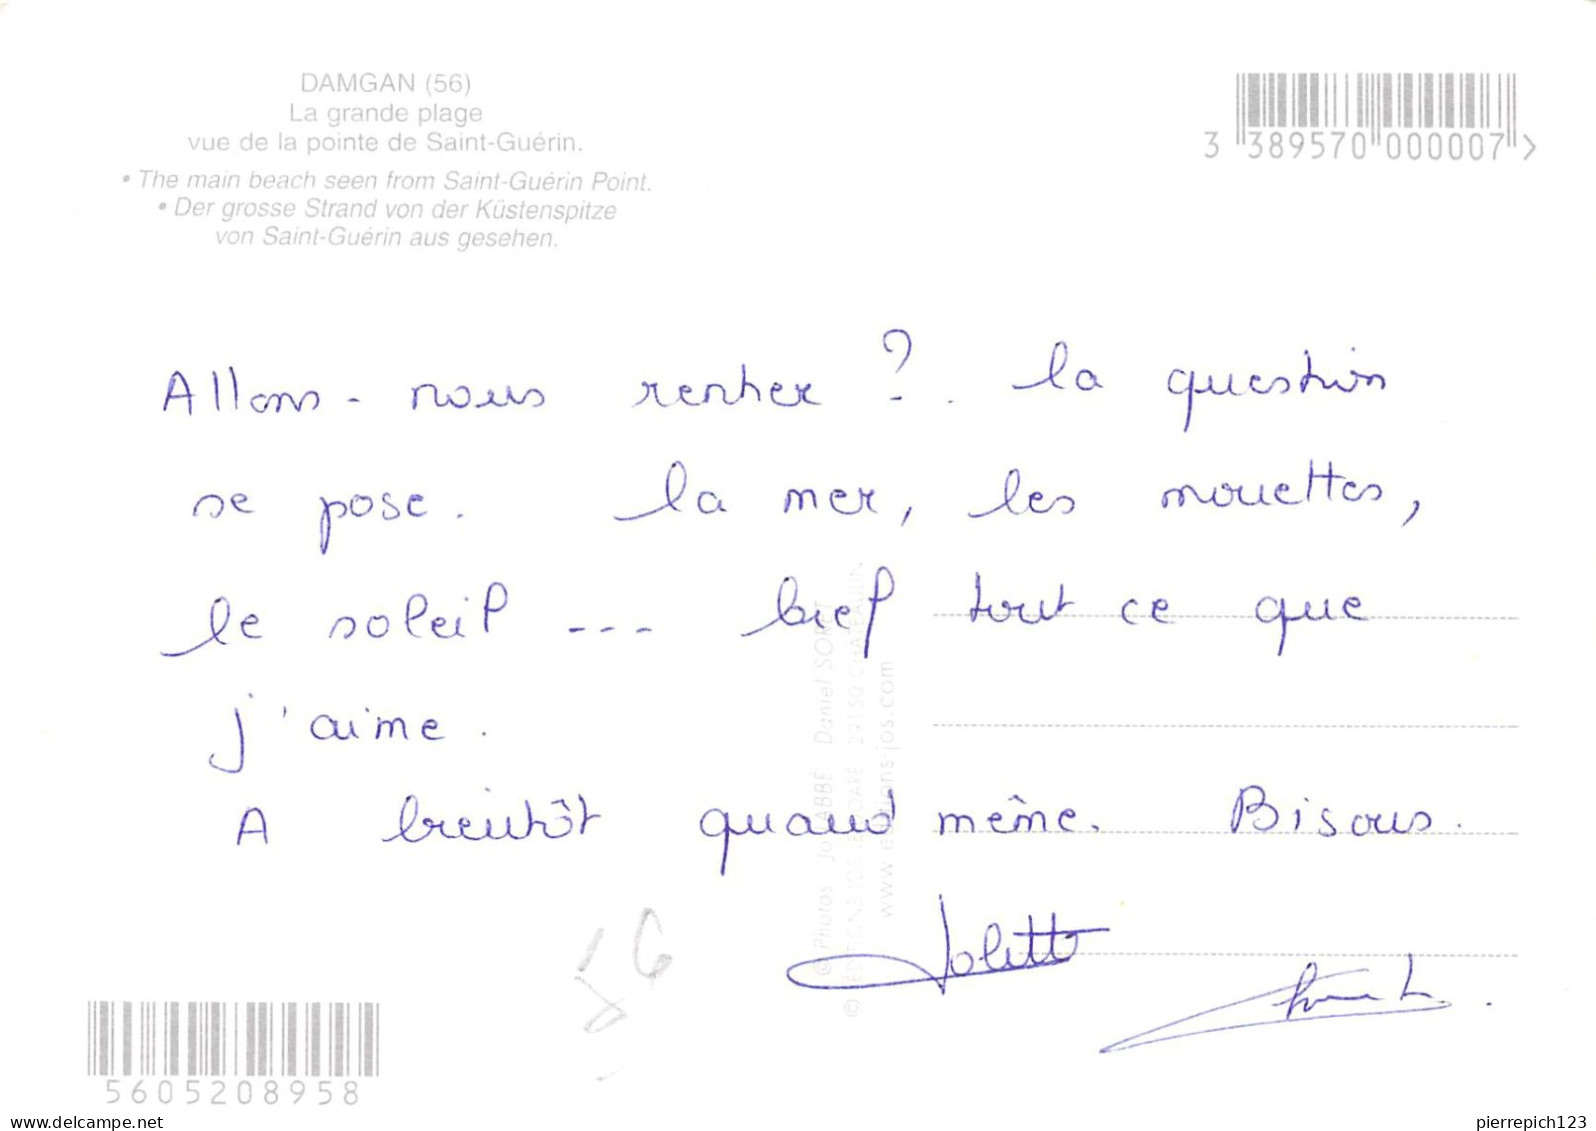 DAMGAN (56)
La grande plage
vue de la pointe de Saint-Guérin.
• The main beach seen from Saint-Guérin Point.
• Der grosse Strand von der Küstenspitze
von Saint-Guérin aus gesehen.
3 389570 000007 >
Allons-nous rentrer ? . la question
se pose. la mer, les mouettes,
le soleil --- bref tout ce que
j'aime.
A bientôt quand même. Bisous.
Jolette
56
© Photos Jos ABBÉ Daniel SORET
www.editions-jos.com
5605208958
www.delcampe.net
pierrepich123